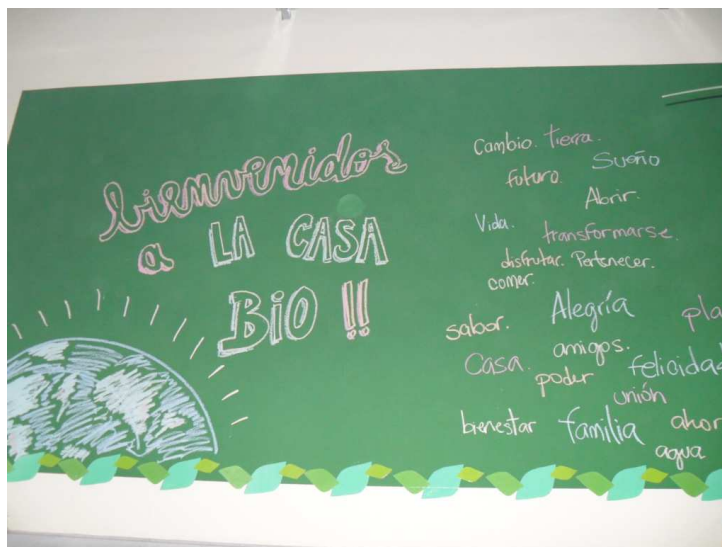 bienvenidos
a LA CASA
BIO !!
Cambio. tierra.
Sueño
futuro.
Abrir.
Vida.
transformarse.
disfrutar. Pertenecer.
comer.
Alegría
sabor.
amigos.
Casa. felicidad
poder
unión
bienestar familia
agua